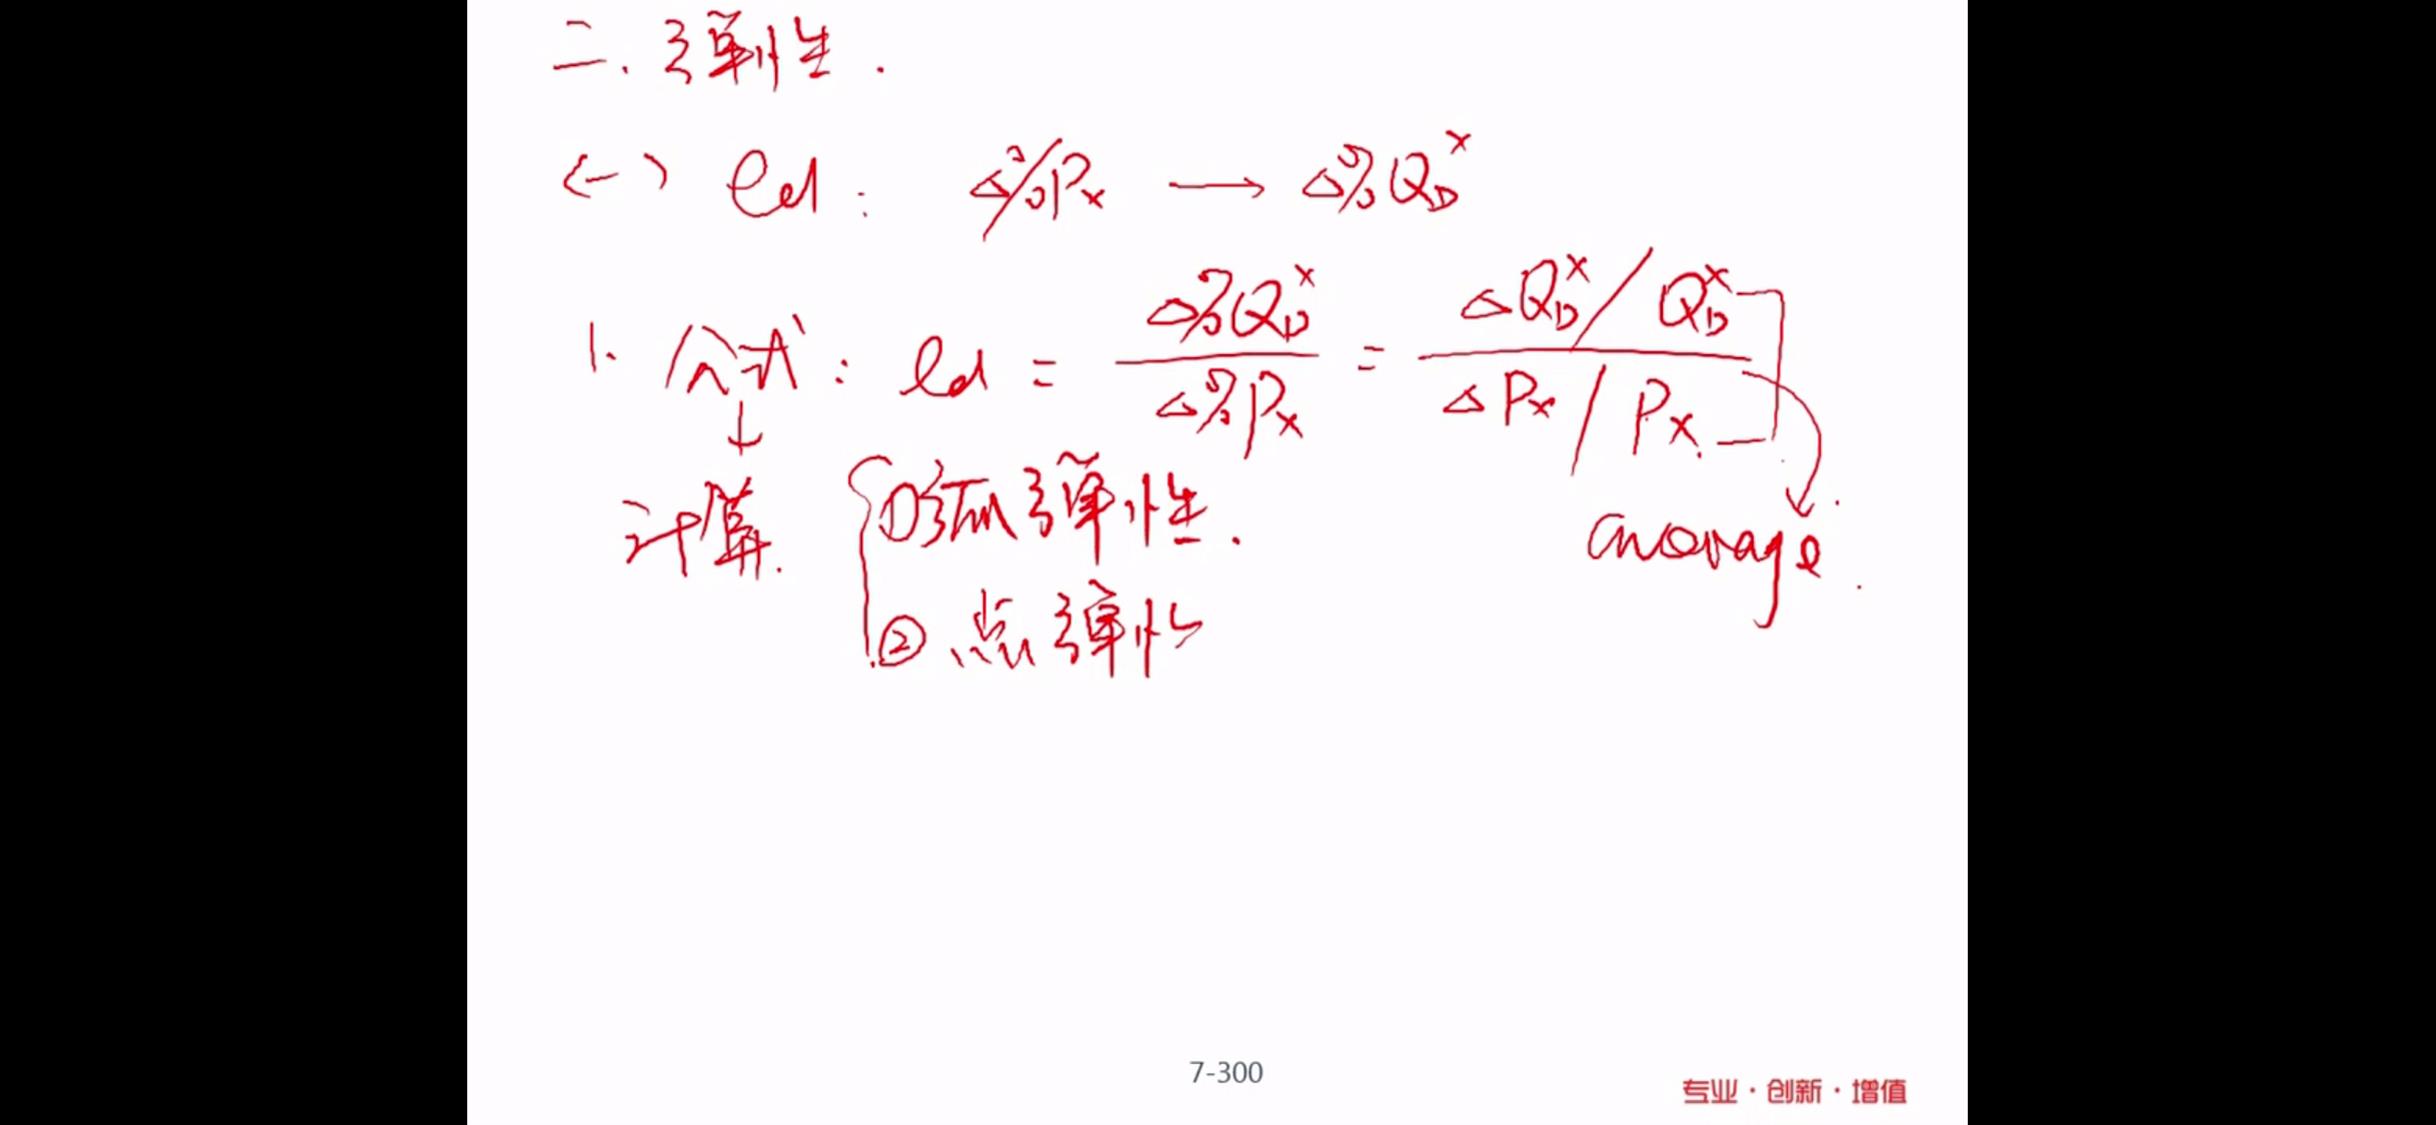 二. 弹性.
(一) ed: Δ%Px → Δ%Q_D^x
1. 公式: ed = Δ%Q_D^x / Δ%Px = (ΔQ_D^x / Q_D^x) / (ΔPx / Px)
↓
计算. ①弧弹性.
average.
②点弹性
7-300
专业·创新·增值